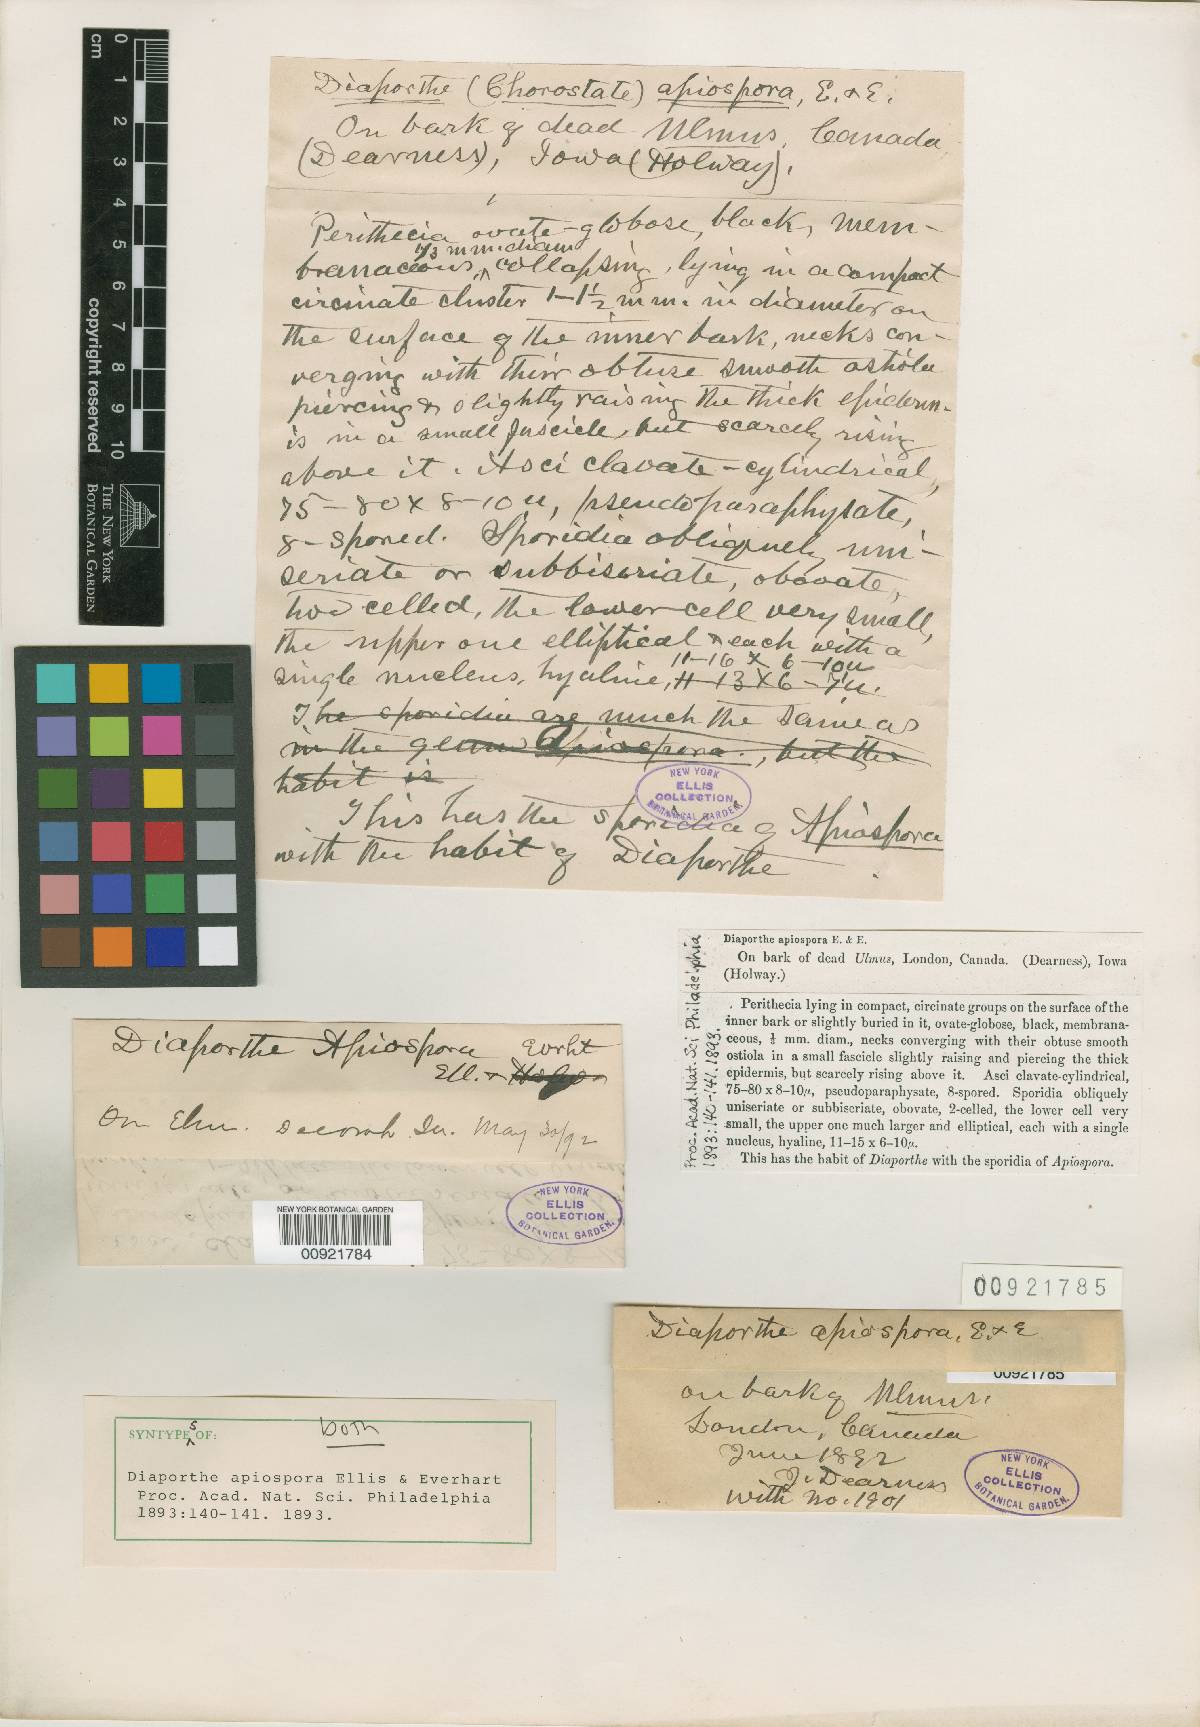 0 1 2 3 4 5 6 7 8 9 10
cm
copyright reserved
THE NEW YORK
BOTANICAL GARDEN
Diaporthe (Chorostate) apiospora, E. & E.
On bark of dead Ulmus, Canada
(Dearness), Iowa (Holway).
Perithecia ovate-globose, black, mem-
1/3 mm. diam
branaceous, ^ collapsing, lying in a compact
circinate cluster 1-1½ mm. in diameter on
the surface of the inner bark, necks con-
verging with their obtuse smooth ostiola
piercing & slightly raising the thick epiderm-
is in a small fascicle, but scarcely rising
above it. Asci clavate-cylindrical,
75-80 x 8-10 u, pseudoparaphysate,
8-spored. Sporidia obliquely uni-
seriate or subbiseriate, obovate,
two celled, the lower cell very small,
the upper one elliptical & each with a
11-16 x 6-10u
single nucleus, hyaline, 11-13 x 6-7u.
The sporidia are much the same as
in the genus Apiospora, but the
habit is
This has the sporidia of Apiospora
with the habit of Diaporthe.
NEW YORK
ELLIS
COLLECTION
BOTANICAL GARDEN.
Proc. Acad. Nat. Sci Philadelphia
1893:140-141. 1893.
Diaporthe apiospora E. & E.
On bark of dead Ulmus, London, Canada. (Dearness), Iowa
(Holway.)
Perithecia lying in compact, circinate groups on the surface of the
inner bark or slightly buried in it, ovate-globose, black, membrana-
ceous, ⅓ mm. diam., necks converging with their obtuse smooth
ostiola in a small fascicle slightly raising and piercing the thick
epidermis, but scarcely rising above it. Asci clavate-cylindrical,
75-80 x 8-10µ, pseudoparaphysate, 8-spored. Sporidia obliquely
uniseriate or subbiseriate, obovate, 2-celled, the lower cell very
small, the upper one much larger and elliptical, each with a single
nucleus, hyaline, 11-15 x 6-10µ.
This has the habit of Diaporthe with the sporidia of Apiospora.
Diaporthe Apiospora Evrht
Ell. &
On Elm. Decorah. Ia. May 30/92
NEW YORK BOTANICAL GARDEN
00921784
NEW YORK
ELLIS
COLLECTION
BOTANICAL GARDEN.
00921785
Diaporthe apiospora, E. & E
00921785
on bark of Ulmus.
London, Canada
June 1892
J. Dearness
with no. 1901
NEW YORK
ELLIS
COLLECTION
BOTANICAL GARDEN.
SYNTYPES OF: both
Diaporthe apiospora Ellis & Everhart
Proc. Acad. Nat. Sci. Philadelphia
1893:140-141. 1893.